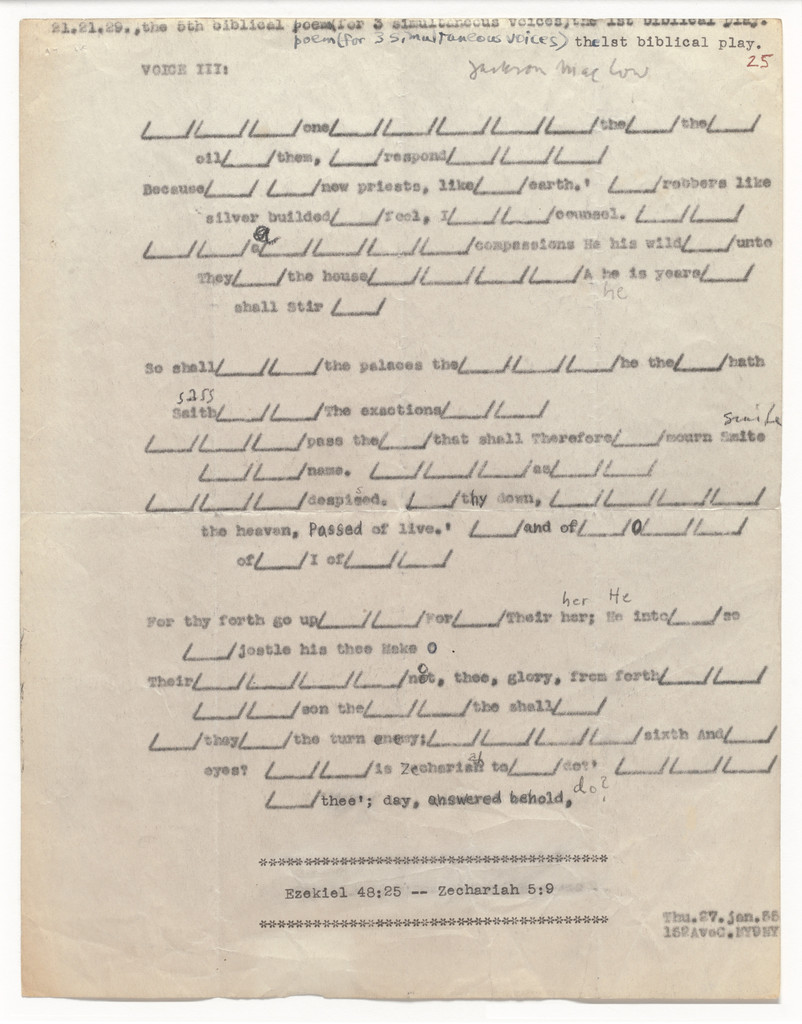 21.21.29.,the 5th biblical poem(for 3 simultaneous voices)the 1st biblical play.
poem(for 3 simultaneous voices) the1st biblical play.
25
VOICE III:
Jackson Mac Low
/___//___//___/one/___//___//___//___//___/the/___/the/___/
oil/___/them, /___/respond/___//___//___/
Because/___/ /___/new priests, like/___/earth.' /___/robbers like
silver builded/___/feel, I/___//___/counsel. /___//___/
a
/___//___/a/___//___//___//___/compassions He his wild/___/unto
They/___/the house/___//___//___//___/A he is years/___/
he
shall Stir /___/
So shall/___//___/the palaces the/___//___//___/he the/___/hath
sass
Saith/___//___/The exactions/___//___/
smite
/___//___//___/pass the/___/that shall Therefore/___/mourn Smite
/___//___/name. /___//___//___/as/___//___/
s
/___//___//___/despised. /___/thy down, /___//___//___//___/
the heaven, Passed of live.' /___/and of/___/O/___//___/
of/___/I of/___//___/
her He
For thy forth go up/___//___/For/___/Their her; He into/___/so
/___/jostle his thee Make O .
o
Their/___//___//___//___/not, thee, glory, from forth/___//___/
/___//___/son the/___//___/the shall/___/
/___/they/___/the turn enemy;/___//___//___//___/sixth And/___/
ah
eyes? /___//___/is Zechariah to/___/do?' /___//___//___/
do?
/___/thee'; day, answered behold,
***************************************
Ezekiel 48:25 -- Zechariah 5:9
***************************************
Thu.27.jan.55
152AveC.NY9NY